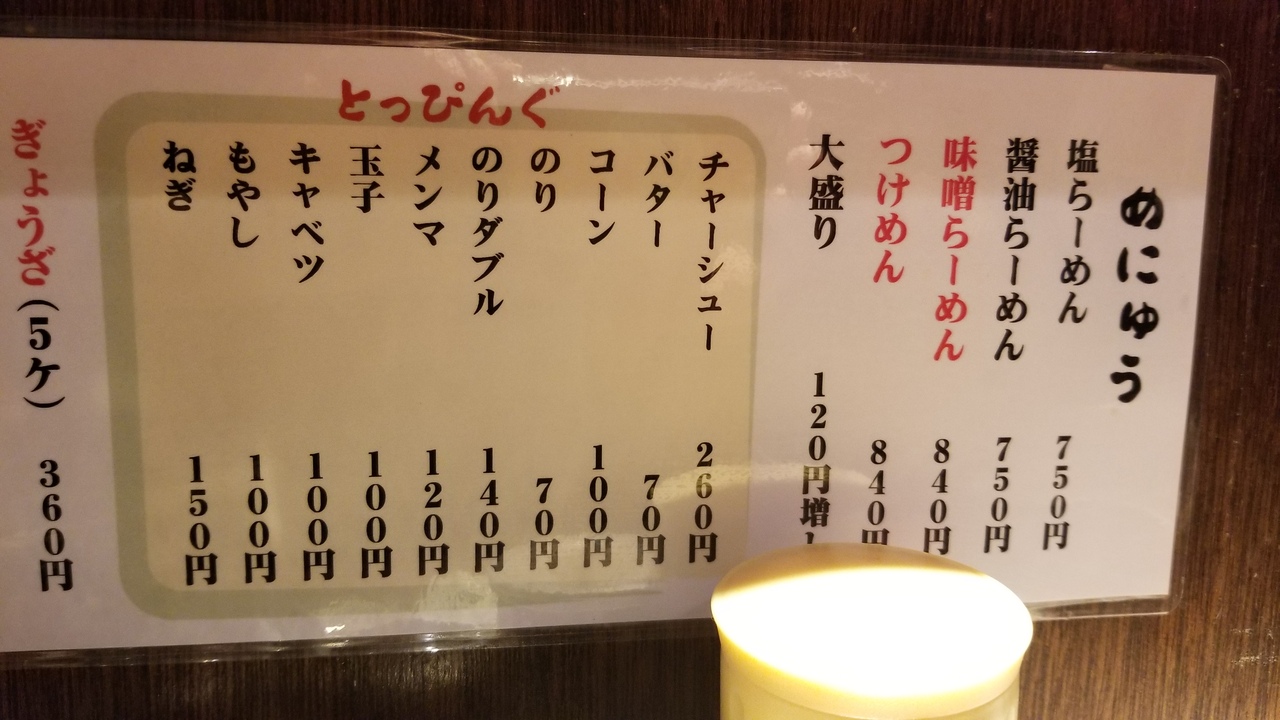 めにゅう
塩らーめん 750円
醤油らーめん 750円
味噌らーめん 840円
つけめん 840円
大盛り 120円増し
とっぴんぐ
チャーシュー 260円
バター 70円
コーン 100円
のり 70円
のりダブル 140円
メンマ 120円
玉子 100円
キャベツ 100円
もやし 100円
ねぎ 150円
ぎょうざ(5ケ) 360円